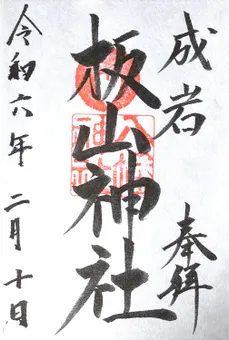 奉拝
成岩
板山神社
令和六年二月十日